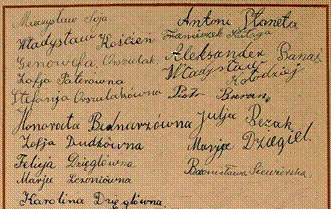 Mieczysław Soja
Władysław Kościen
Genowefa Orszulak
Zofja Paterówna
Stefanja Orszulakówna
Honorata Bednarzówna
Zofja Dudkówna
Felicja Dzięglówna
Marja Lezoniówna
Karolina Dzięglówna
Antoni Płaneta
Franciszek
Aleksander Banaś
Władysław Kołodziej
Piotr Baran
Julja Bezak
Marja Dzięgiel
Bronisława